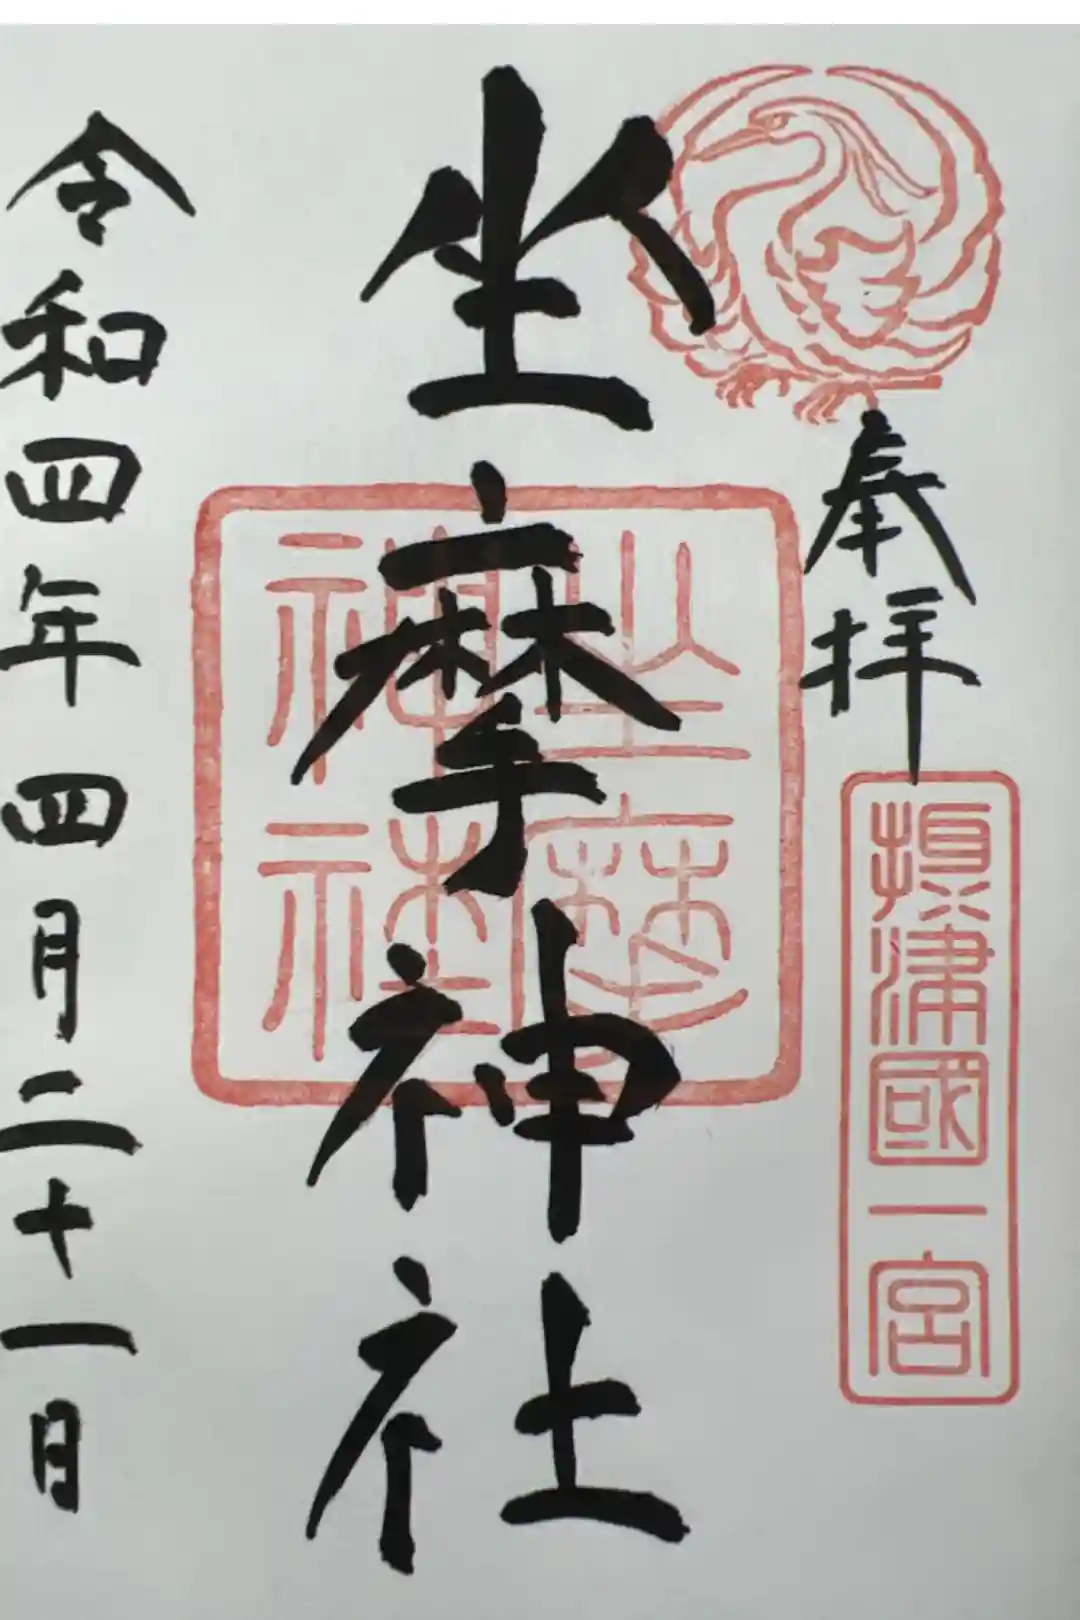 奉拝
摂津國一宮
坐摩神社
坐摩
神社
令和四年四月二十一日